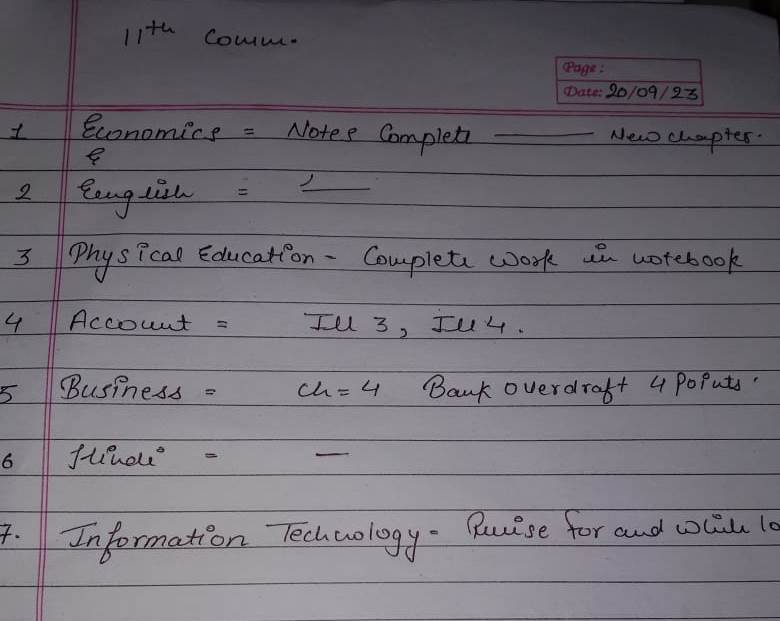 11th Comm.
Page:
Date: 20/09/23
1 Economics = Notes Complete —— New chapter.
2 English = —
3 Physical Education - Complete work in notebook
4 Account = Ill 3, Ill 4.
5 Business = ch = 4 Bank overdraft 4 Points.
6 Hindi = —
7. Information Technology - Revise for and while lo